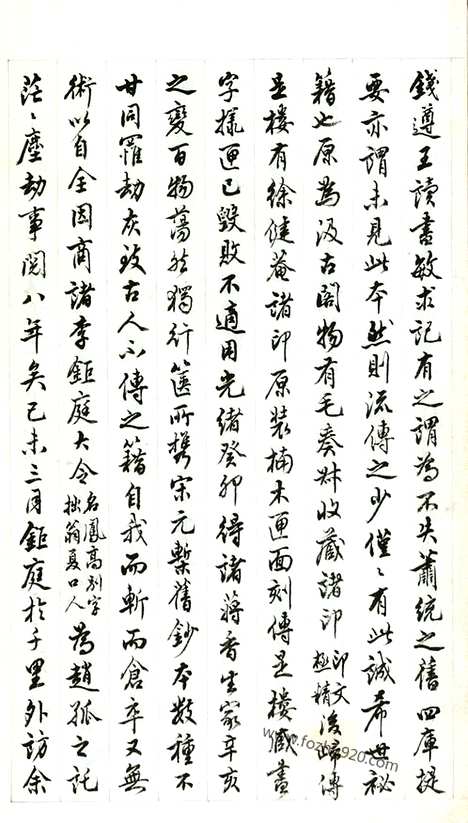 錢遵王讀書敏求記有之謂為不失蕭統之舊四庫提
要亦謂未見此本然則流傳之少僅〻有此誠希世祕
籍也原為汲古閣物有毛奏叔收藏諸印印文極精後歸傳
是樓有徐健菴諸印原裝楠木匣面刻傳是樓藏書
字樣匣已毀敗不適用光緒癸卯得諸蔣香生家辛亥
之變百物蕩然獨行篋所攜宋元槧舊鈔本數種不
甘同罹劫灰致古人不傳之籍自我而斬而倉卒又無
術以自全因商諸李鉅庭大令名鳳高別字拙翁夏口人為趙孤之託
茫〻塵劫事閱八年矣己未三月鉅庭於千里外訪余
www.fozhu920.com